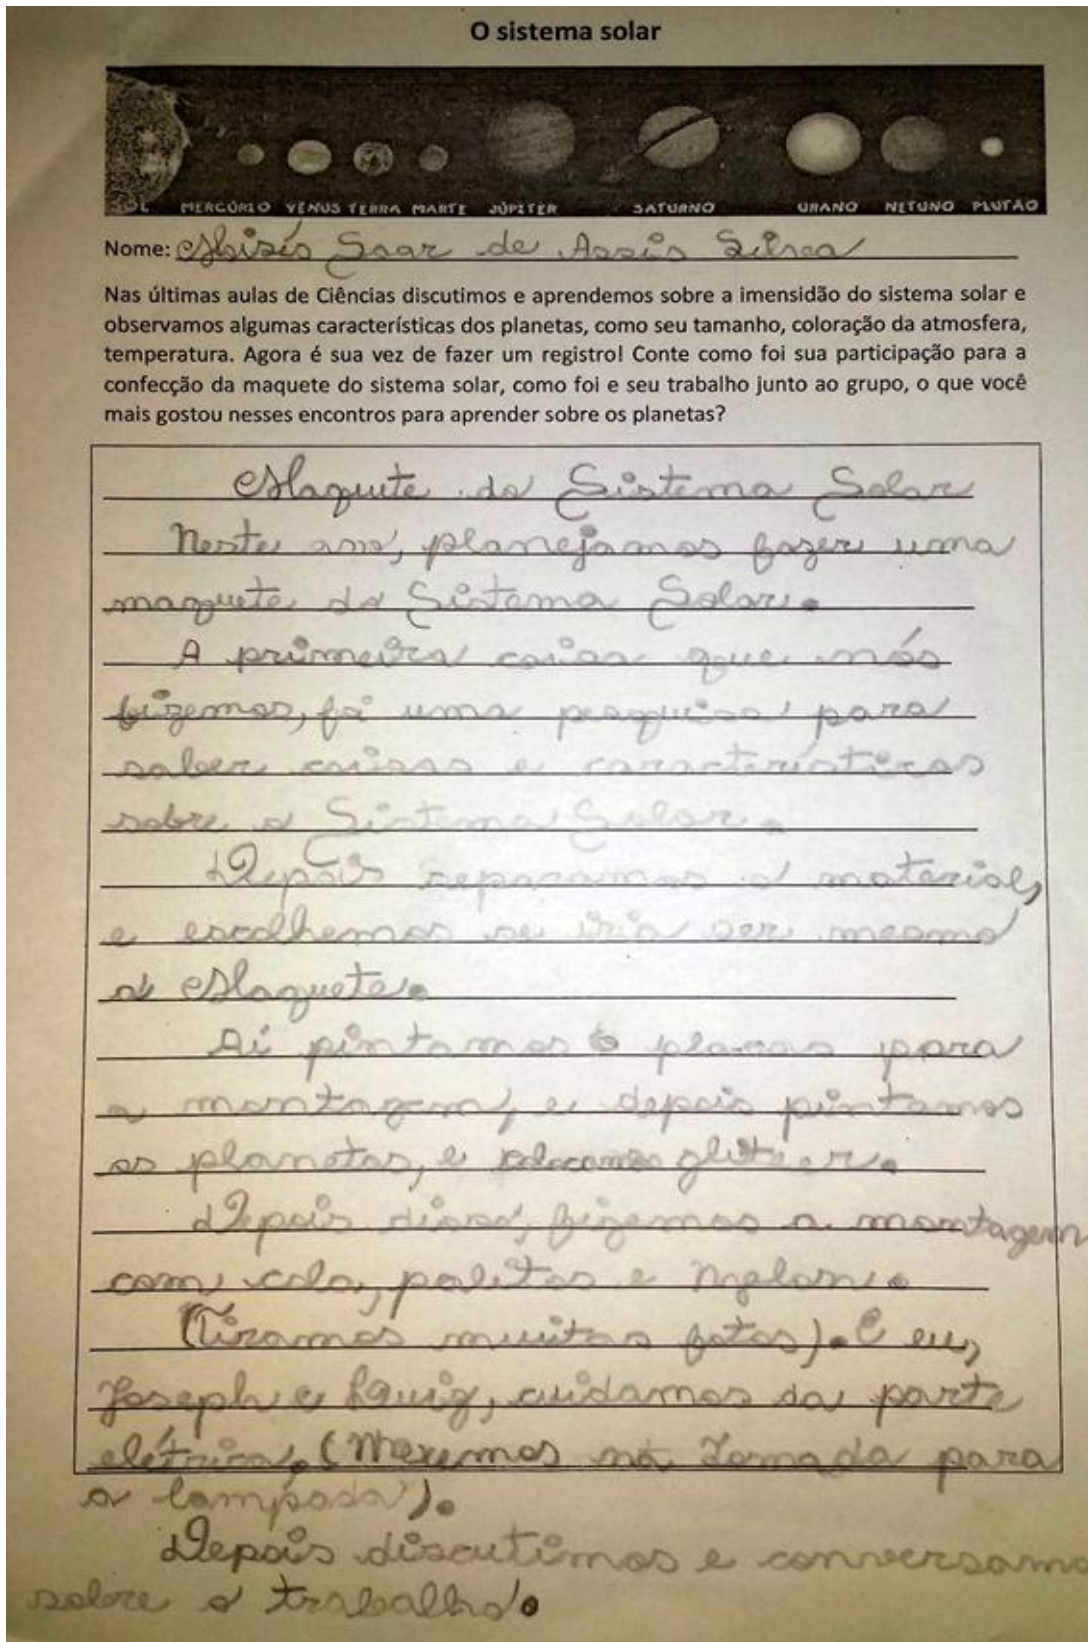 O sistema solar
SOL MERCÚRIO VÊNUS TERRA MARTE JÚPITER SATURNO URANO NETUNO PLUTÃO
Nome: Moisés Saar de Assis Silva
Nas últimas aulas de Ciências discutimos e aprendemos sobre a imensidão do sistema solar e
observamos algumas características dos planetas, como seu tamanho, coloração da atmosfera,
temperatura. Agora é sua vez de fazer um registro! Conte como foi sua participação para a
confecção da maquete do sistema solar, como foi e seu trabalho junto ao grupo, o que você
mais gostou nesses encontros para aprender sobre os planetas?
Maquete do Sistema Solar
Neste ano, planejamos fazer uma
maquete do Sistema Solar.
A primeira coisa que nós
fizemos, foi uma pesquisa para
saber coisas e características
sobre o Sistema Solar.
Depois separamos o material,
e escolhemos se iria ser mesmo
a Maquete.
Aí pintamos 6 placas para
a montagem, e depois pintamos
os planetas, e colocamos gliteer.
Depois disso, fizemos a montagem
com cola, palitos e Nylon.
(Tiramos muitas fotos). E eu,
Joseph e Luiz, cuidamos da parte
elétrica. (Mexemos na Tomada para
a lampada).
Depois discutimos e conversamo
sobre o trabalho.